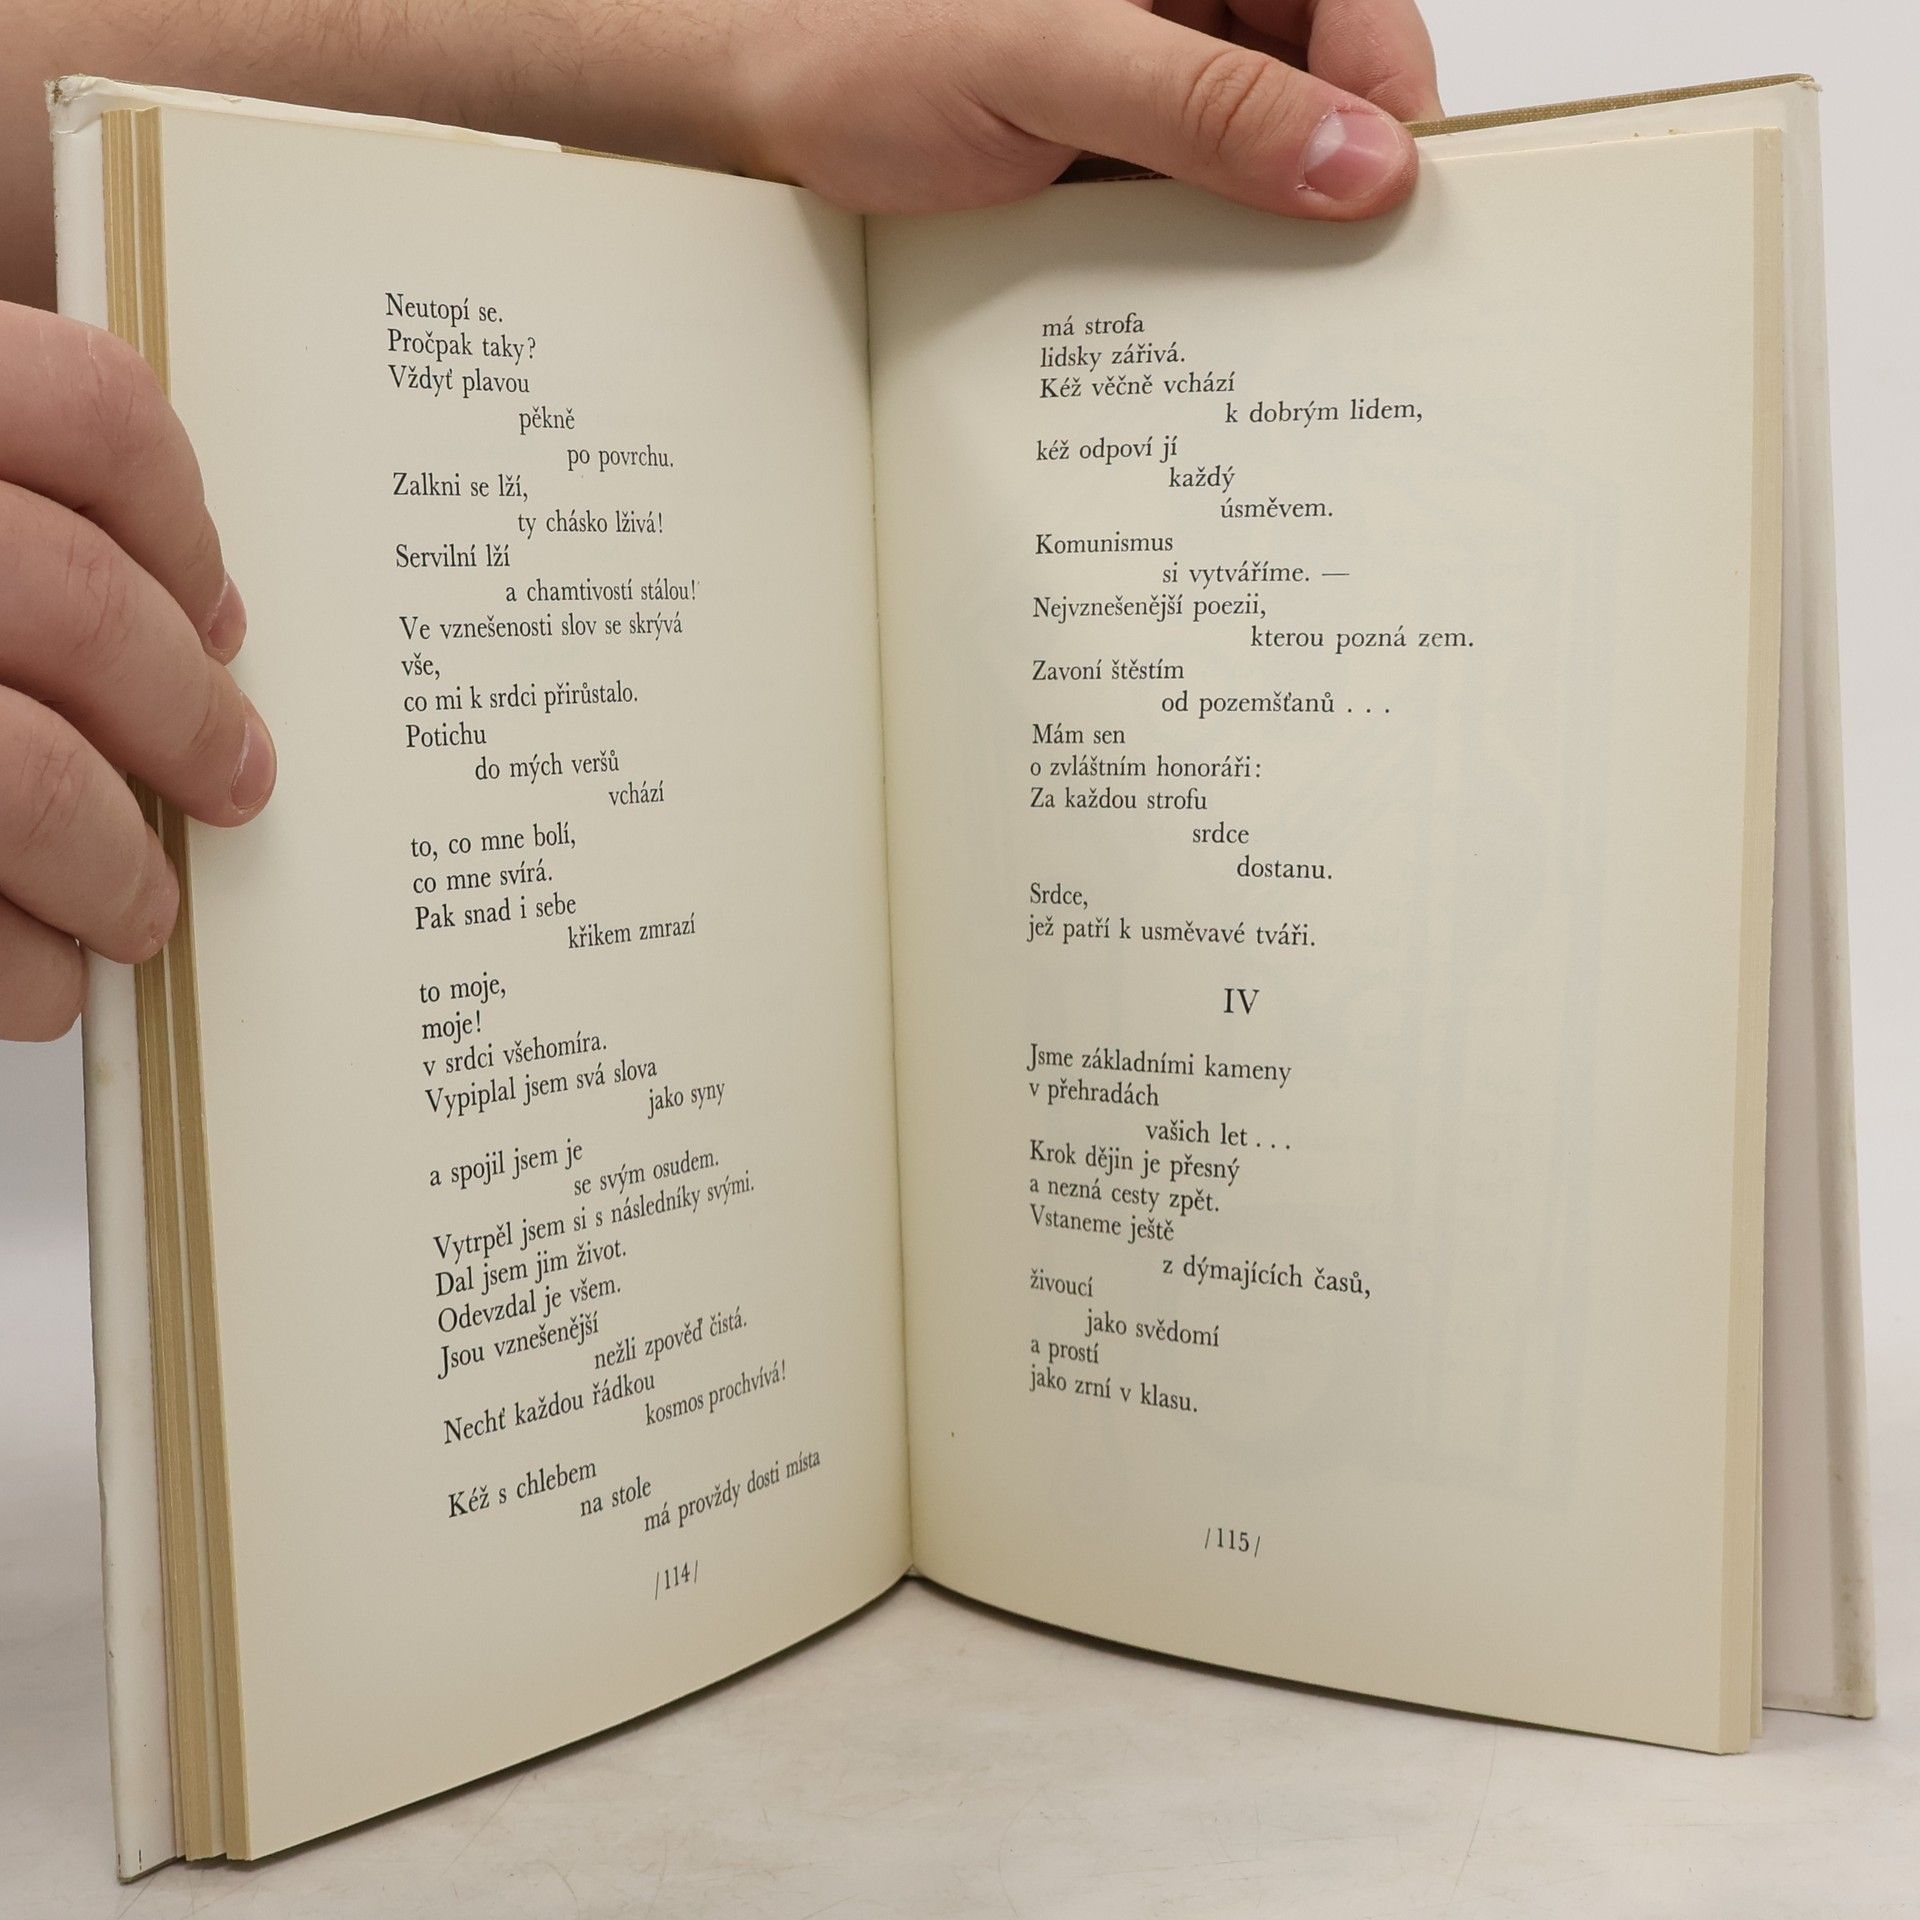 Neutopí se.
Pročpak taky?
Vždyť plavou
pěkně
po povrchu.
Zalkni se lží,
ty chásko lživá!
Servilní lží
a chamtivostí stálou!
Ve vznešenosti slov se skrývá
vše,
co mi k srdci přirůstalo.
Potichu
do mých veršů
vchází
to, co mne bolí,
co mne svírá.
Pak snad i sebe
křikem zmrazí
to moje,
moje!
v srdci všehomíra.
Vypiplal jsem svá slova
jako syny
a spojil jsem je
se svým osudem.
Vytrpěl jsem si s následníky svými.
Dal jsem jim život.
Odevzdal je všem.
Jsou vznešenější
nežli zpověď čistá.
Nechť každou řádkou
kosmos prochvívá!
Kéž s chlebem
na stole
má provždy dosti místa
/114/
má strofa
lidsky zářivá.
Kéž věčně vchází
k dobrým lidem,
kéž odpoví jí
každý
úsměvem.
Komunismus
si vytváříme. —
Nejvznešenější poezii,
kterou pozná zem.
Zavoní štěstím
od pozemšťanů . . .
Mám sen
o zvláštním honoráři:
Za každou strofu
srdce
dostanu.
Srdce,
jež patří k usměvavé tváři.
IV
Jsme základními kameny
v přehradách
vašich let . . .
Krok dějin je přesný
a nezná cesty zpět.
Vstaneme ještě
z dýmajících časů,
živoucí
jako svědomí
a prostí
jako zrní v klasu.
/115/